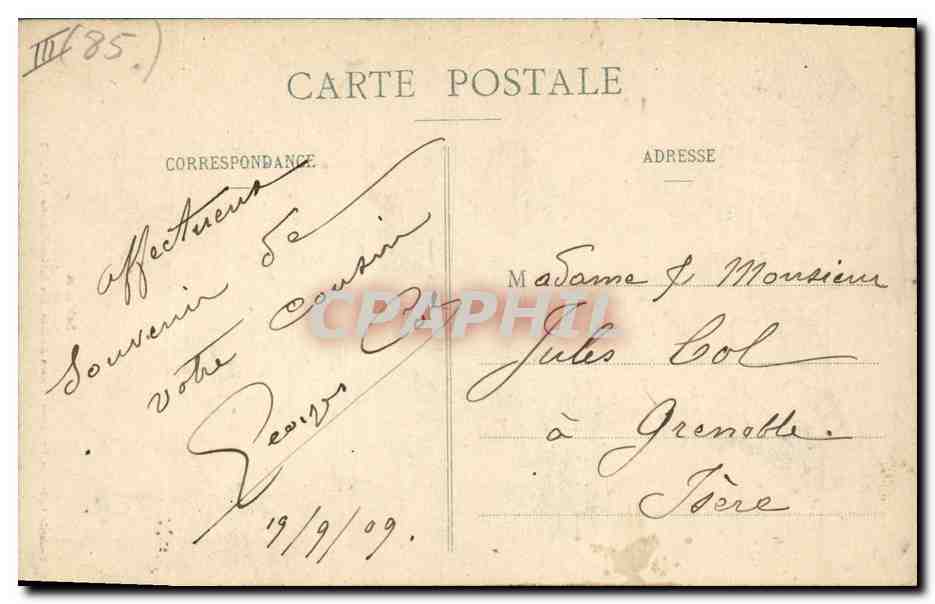 III (85.)
CARTE POSTALE
CORRESPONDANCE
ADRESSE
affectueux
souvenir de
votre cousin
Georges
19/9/09.
Madame & Monsieur
Jules Col
à Grenoble.
Isère
CPAPHIL